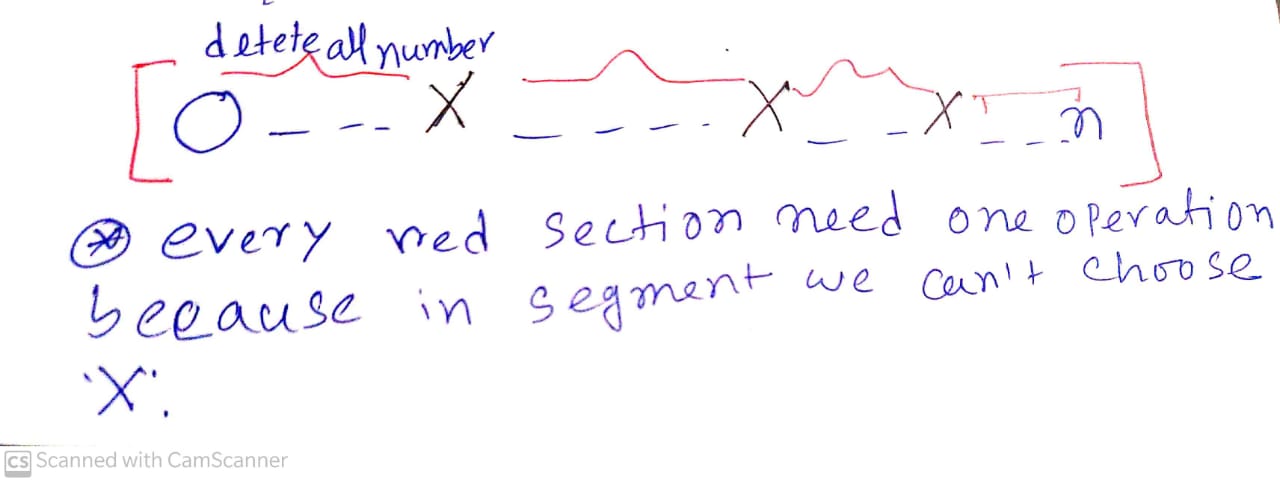 detete all number
[ O - - - X - - - - . X - - X - - - n ]
* every red section need one operation
because in segment we can't choose
'X'.
CS Scanned with CamScanner